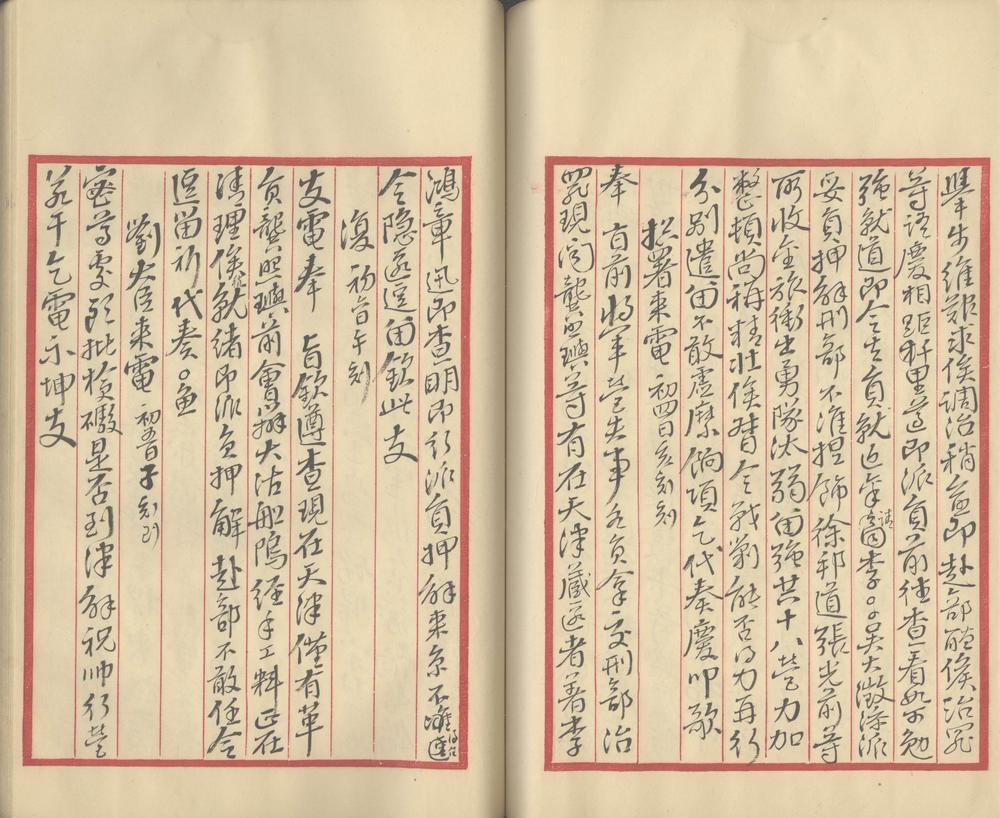 舉步維艱求俟調治稍益即赴部聽候治罪
等語慶相距秤里並即派員前往查看如可勉
強就道即令其員就近牢請李○○吳大澂添派
妥員押解刑部不准捏飾徐邦道張光前等
所收全旅衝出勇隊汰弱留強共十八營力加
整頓尚稱精壯俟督令戰剿能否得力再行
分別遣留不敢虛縻餉項乞代奏慶叩歌
 授署來電 初四日亥刻刻
奉 旨前將軍營已失事各員拿交刑部治
罪現聞龔照璵等有在天津藏匿者著李
鴻章迅即查明即行派員押解來京不准
令隱匿逗留欽此支
 復 初六日午刻
支電奉 旨欽遵查現在天津僅有革
員龔照璵前會辦大沽船塢經手工料正在
清理俟就緒即派員押解赴部不敢任令
逗留祈代奏○魚
 劉大臣來電 初五日子刻到
密尊處訂批槍礮是否到津解祝帥行營
若干乞電示坤支